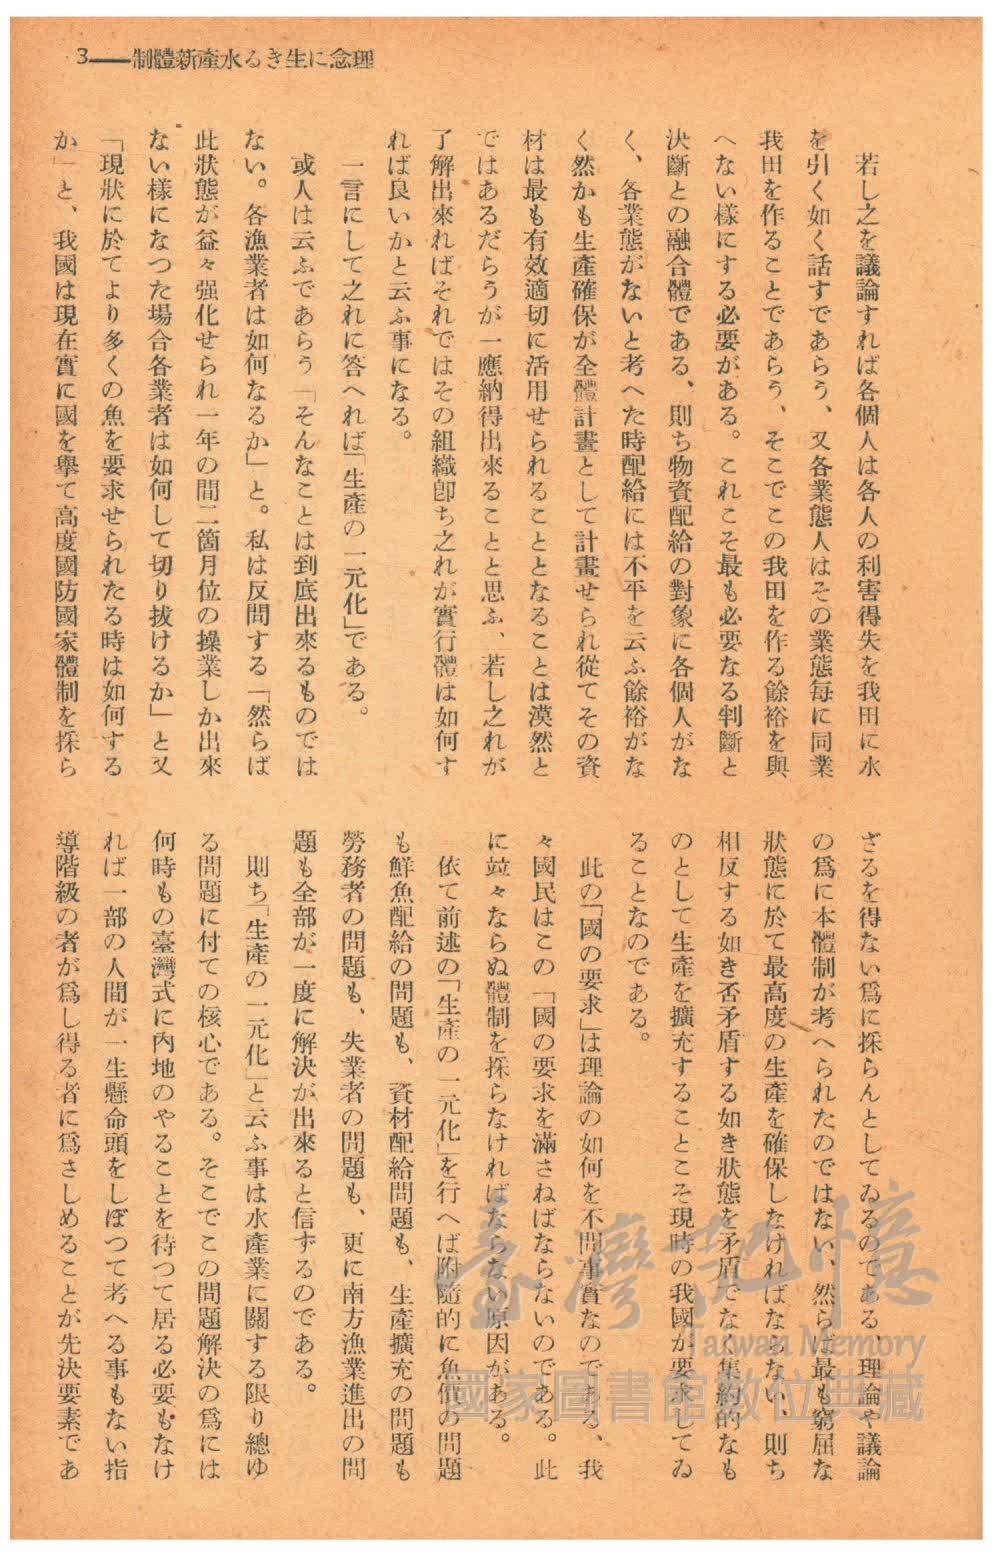 3——制體新產水るき生に念理
若し之を議論すれば各個人は各人の利害得失を我田に水
を引く如く話すであらう、又各業態人はその業態每に同業
我田を作ることであらう、そこでこの我田を作る餘裕を與
へない樣にする必要がある。これこそ最も必要なる判斷と
決斷との融合體である、則ち物資配給の對象に各個人がな
く、各業態がないと考へた時配給には不平を云ふ餘裕がな
く然かも生產確保が全體計畫として計畫せられ從てその資
材は最も有效適切に活用せられることとなることは漠然と
ではあるだらうが一應納得出來ることと思ふ、若し之れが
了解出來ればそれではその組織卽ち之れが實行體は如何す
れば良いかと云ふ事になる。
一言にして之れに答へれば「生產の一元化」である。
或人は云ふであらう「そんなことは到底出來るものでは
ない。各漁業者は如何なるか」と。私は反問する「然らば
此狀態が益々强化せられ一年の間二箇月位の操業しか出來
ない樣になつた場合各業者は如何して切り拔けるか」と又
「現狀に於てより多くの魚を要求せられたる時は如何する
か」と、我國は現在實に國を擧て高度國防國家體制を採ら
ざるを得ない爲に採らんとしてゐるのである、理論や議論
の爲に本體制が考へられたのではない、然らば最も窮屈な
狀態に於て最高度の生產を確保しなければならない、則ち
相反する如き否矛盾する如き狀態を矛盾でなく集約的なも
のとして生產を擴充することこそ現時の我國が要求してゐ
ることなのである。
此の「國の要求」は理論の如何を不問事實なのである、我
々國民はこの「國の要求を滿さねばならないのである。此
に竝々ならぬ體制を採らなければならない原因がある。
依て前述の「生產の一元化」を行へば附隨的に魚價の問題
も鮮魚配給の問題も、資材配給問題も、生產擴充の問題も
勞務者の問題も、失業者の問題も、更に南方漁業進出の問
題も全部が一度に解決が出來ると信ずるのである。
則ち「生產の一元化」と云ふ事は水產業に關する限り總ゆ
る問題に付ての核心である。そこでこの問題解決の爲には
何時もの臺灣式に內地のやることを待つて居る必要もなけ
れば一部の人間が一生懸命頭をしぼつて考へる事もない指
導階級の者が爲し得る者に爲さしめることが先決要素であ
臺灣記憶
Taiwan Memory
國家圖書館數位典藏